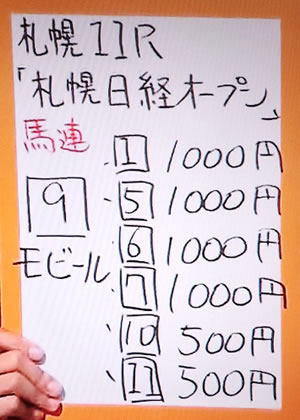 札幌11R
「札幌日経オープン」
馬連
9
モビール
1 1000円
5 1000円
6 1000円
7 1000円
10 500円
11 500円